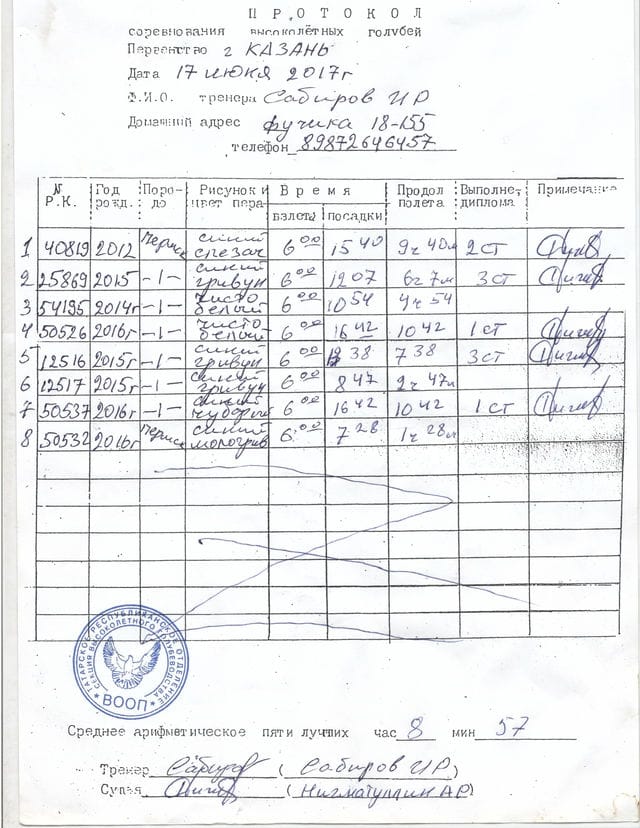 П Р О Т О К О Л
соревнования высоколётных голубей
Первенство г КАЗАНЬ
Дата 17 июня 2017г
Ф.И.О. тренера Сабиров ИР
Домашний адрес фучика 18-155
телефон 89872646457
N Р.К. Год рожд. Поро-до Рисунок и цвет пера Время Продол полета Выполне, диплома Примечание
взлета посадки
1 40819 2012 Пермск синий 6 00 15 40 9ч 40м 2 СТ
2 25869 2015 -1- синий гривун 6 00 12 07 6ч 7м 3 СТ
3 54195 2014г -1- чисто белый 6 00 10 54 4ч 54
4 50526 2016г -1- чисто белый 6 00 16 42 10 42 1 СТ
5 12516 2015г -1- синий гривун 6 00 13 38 7 38 3 СТ
6 12517 2015г -1- синий гривун 6 00 8 47 2ч 47м
7 50537 2016г -1- синий чубарый 6 00 16 42 10 42 1 СТ
8 50532 2016г Пермск синий 6 00 7 28 1ч 28м
ТАТАРСКОЕ РЕСПУБЛИКАНСКОЕ ОТДЕЛЕНИЕ
СЕКЦИЯ ВЫСОКОЛЕТНОГО ГОЛУБЕВОДСТВА
ВООП
Среднее арифметическое пяти лучших час 8 мин 57
Тренер (Сабиров ИР)
Судья (Нигматуллин АР)